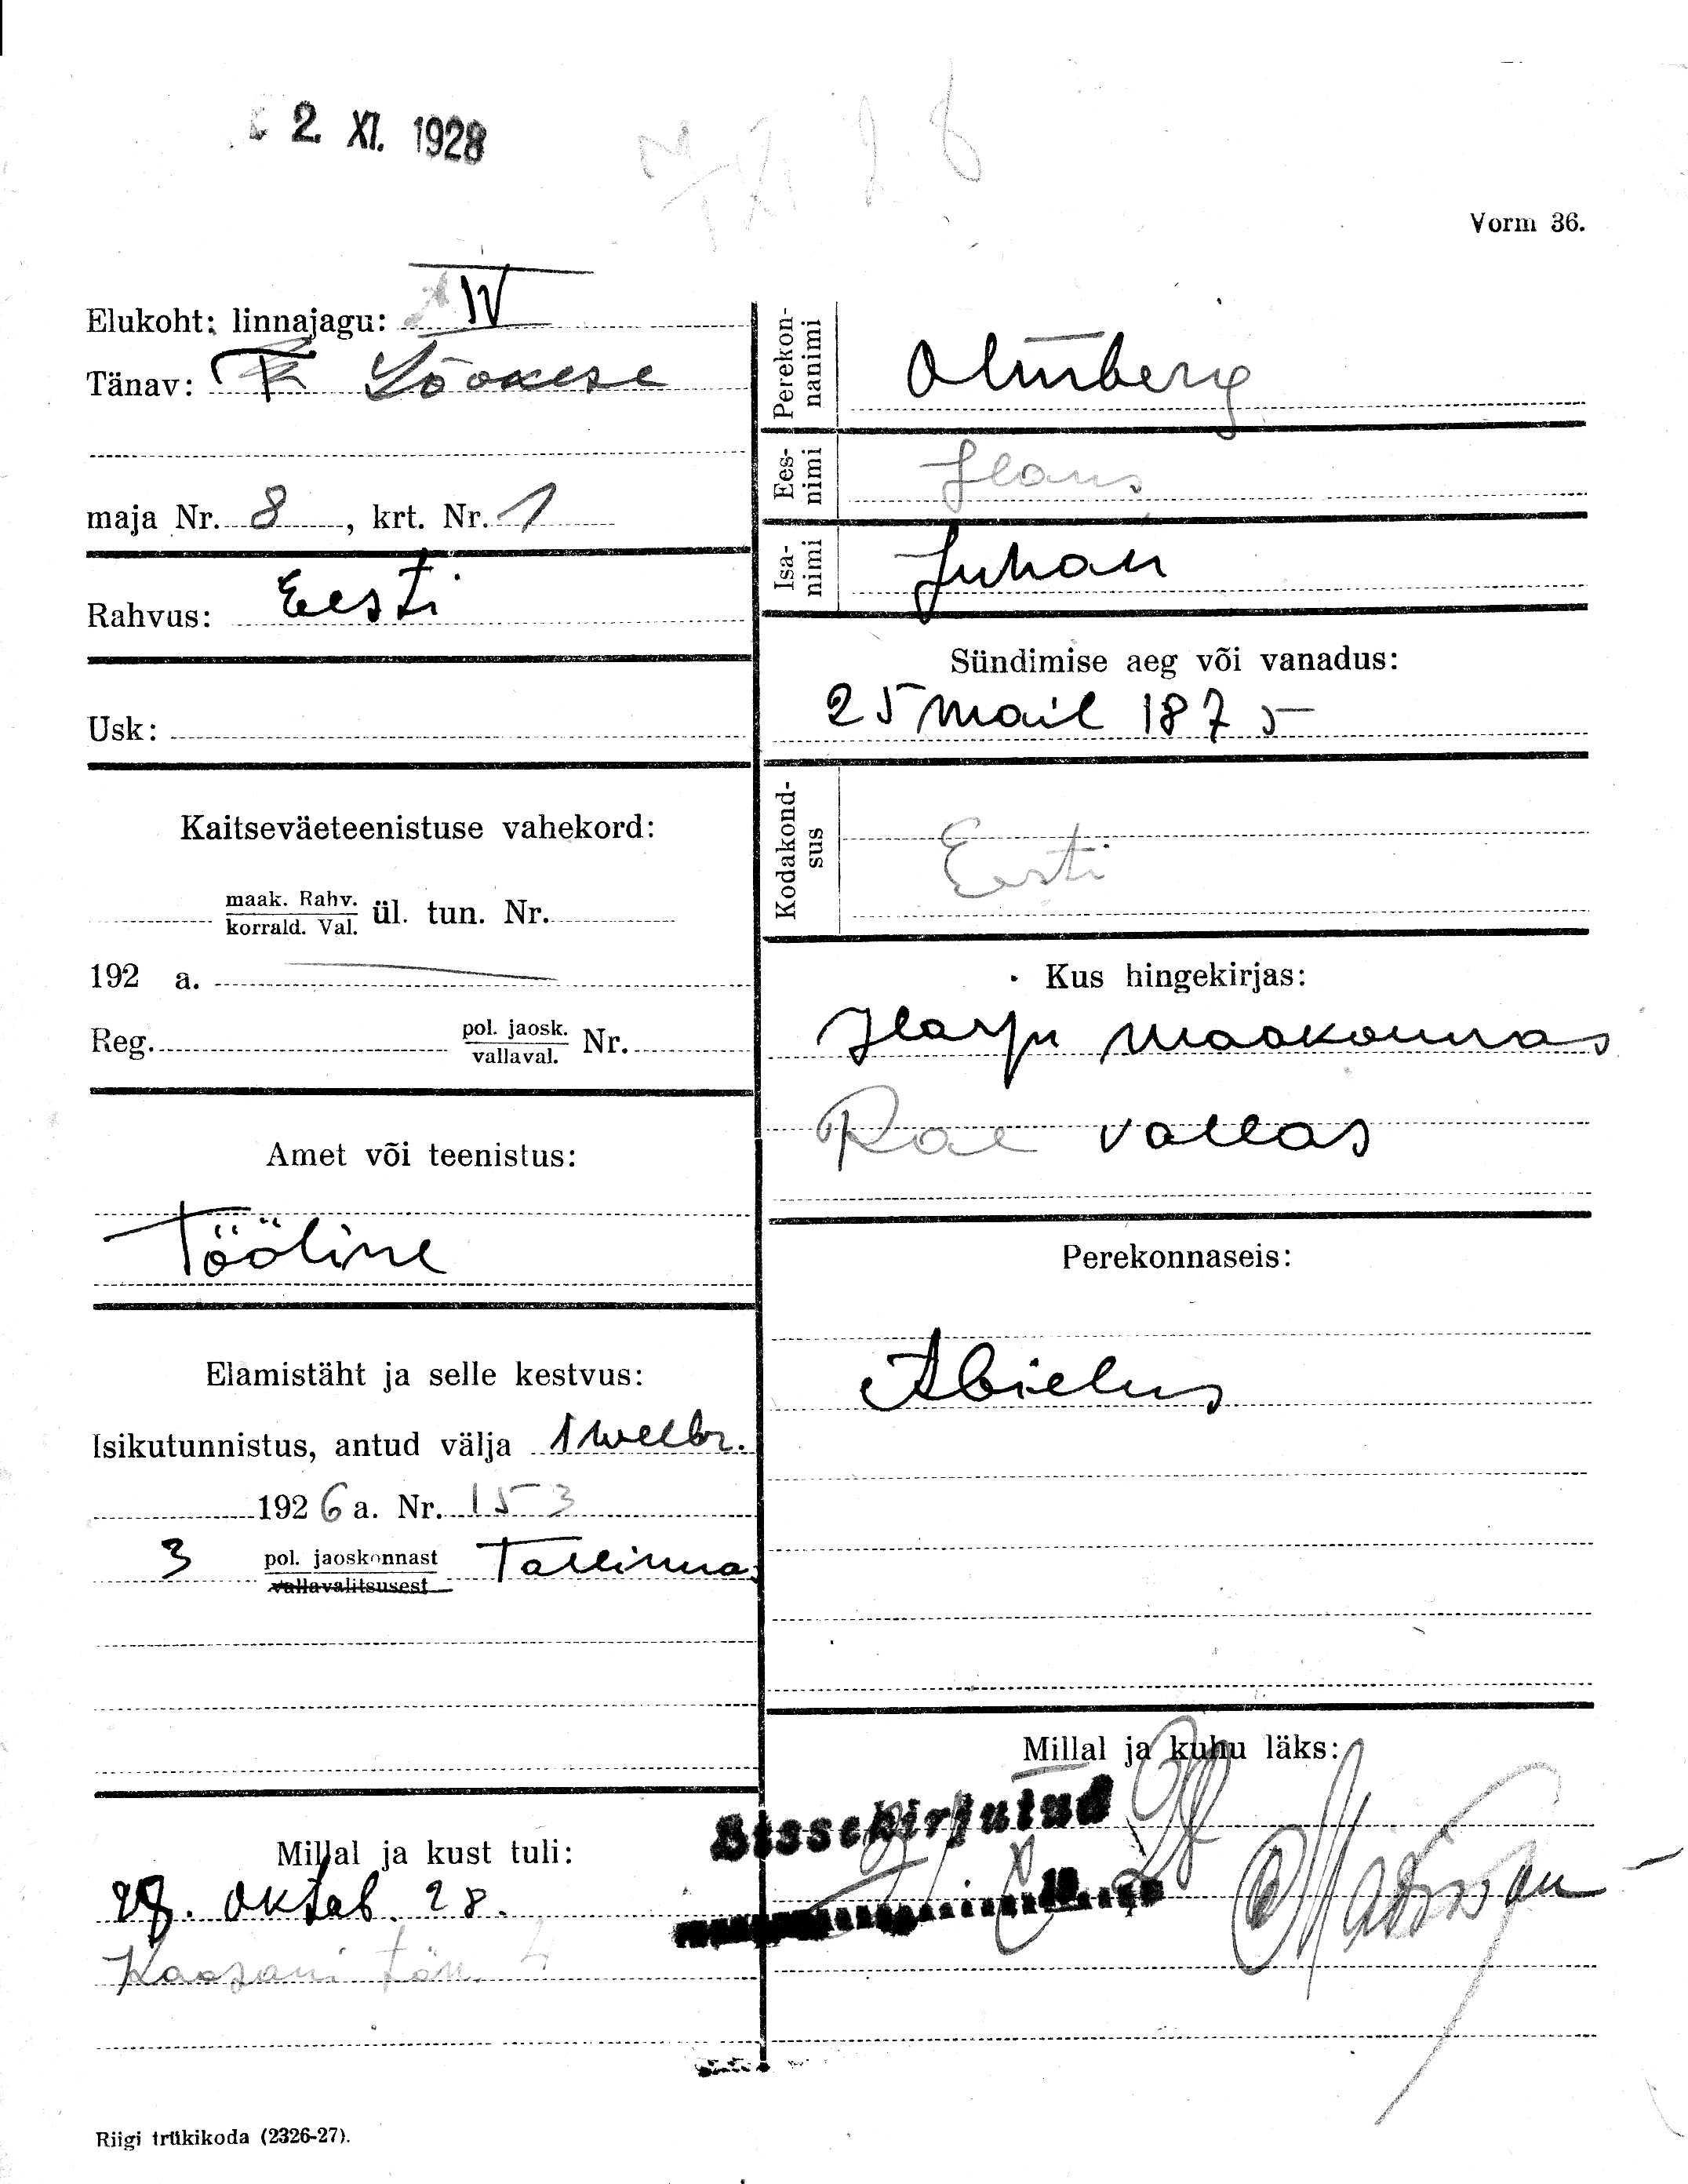 2. XI. 1928
Vorm 36.
Elukoht: linnajagu: IV
Tänav: Lõokese
maja Nr. 8, krt. Nr. 1
Rahvus: Eesti
Usk:
Kaitseväeteenistuse vahekord:
maak. Rahv.
korrald. Val. ül. tun. Nr.
192 a.
Reg. pol. jaosk.
vallaval. Nr.
Amet või teenistus:
Tööline
Elamistäht ja selle kestvus:
Isikutunnistus, antud välja 1
1926 a. Nr. 153
3 pol. jaoskonnast Tallinnas
vallavalitsusest
Millal ja kust tuli:
oktob. 28.
Kaasani tän. 4
Perekon-
nanimi
Ees-
nimi Hans
Isa-
nimi Juhan
Sündimise aeg või vanadus:
25 mail 1875
Kodakond-
sus Eesti
Kus hingekirjas:
Harju maakonnas
Rae vallas
Perekonnaseis:
Abielus
Millal ja kuhu läks:
Sissekirjutud
Riigi trükikoda (2326-27).